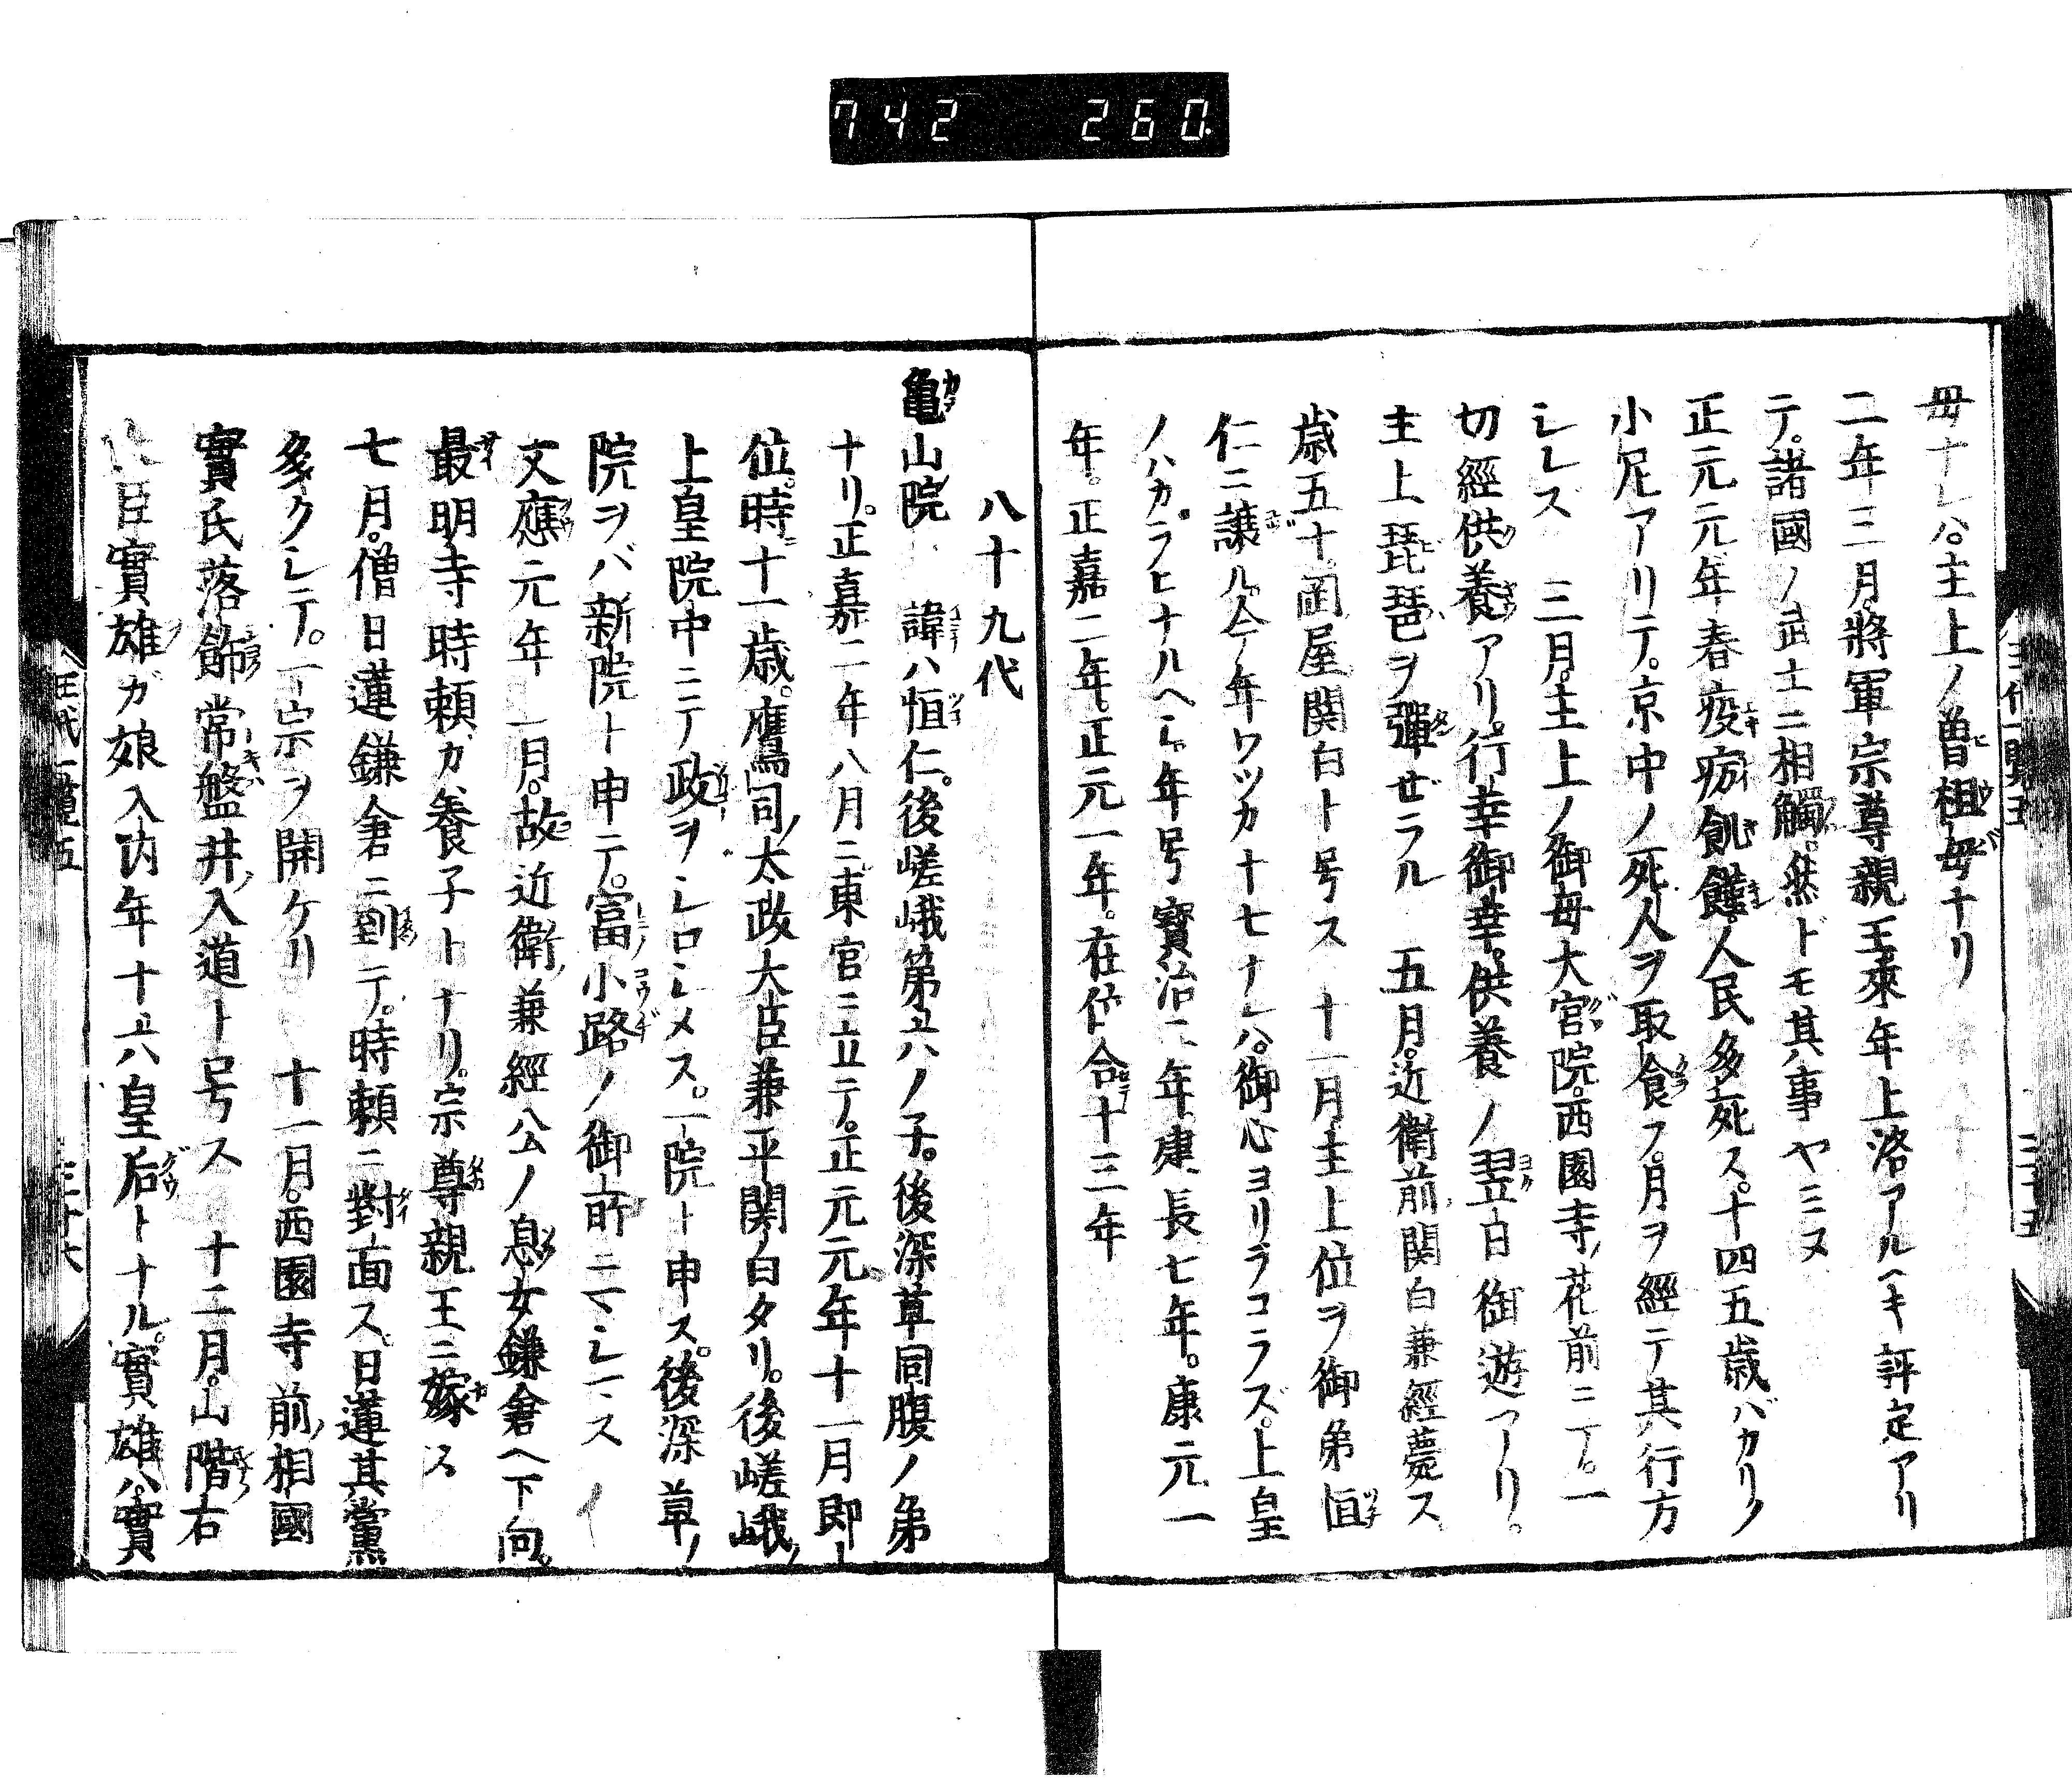 742 260.
母ナレハ。主上ノ曽祖母ナリ
二年三月。將軍宗尊親王來年上洛アルヘキ評定アリ
テ。諸國ノ武士ニ相觸。然ドモ其事ヤミヌ
正元元年春疫癘飢饉。人民多死ス。十四五歳バカリノ
小尼アリテ。京中ノ死人ヲ取食フ。月ヲ經テ其行方
シレズ 三月。主上ノ御母大宮院。西園寺ノ花前ニテ。一
切經供養アリ。行幸御幸。供養ノ翌日御遊アリ。
主上琵琶ヲ彈ゼラル 五月。近衛前関白兼經薨ス
歳五十岡屋関白ト号ス 十一月主上位ヲ御弟恒
仁ニ譲ル。今年ワツカ十七ナレハ。御心ヨリヲコラズ。上皇
ノハカラヒナルヘシ。年号寶治二年。建長七年。康元一
年。正嘉二年。正元一年。在位合十三年
八十九代
亀山院 諱ハ恒仁。後嵯峨第六ノ子。後深草同腹ノ弟
ナリ。正嘉二年八月ニ東宮ニ立テ。正元元年十一月即
位。時ニ十一歳。鷹司ノ太政大臣兼平関白タリ。後嵯峨ノ
上皇院中ニテ政ヲシロシメス。一院ト申ス。後深草ノ
院ヲバ新院ト申テ。富小路ノ御所ニマシマス
文應元年二月。故近衛ノ兼經公ノ息女鎌倉ヘ下向。
最明寺時頼カ養子トナリ。宗尊親王ニ嫁ス
七月。僧日蓮鎌倉ニ到テ。時頼ニ對面ス。日蓮其黨
多クシテ。一宗ヲ開ケリ 十一月。西園寺ノ前相國
實氏落飾常盤井ノ入道ト号ス 十二月。山階右
臣實雄ガ娘入内年十六皇后トナル。實雄ハ。實
王代一覧五
三十六